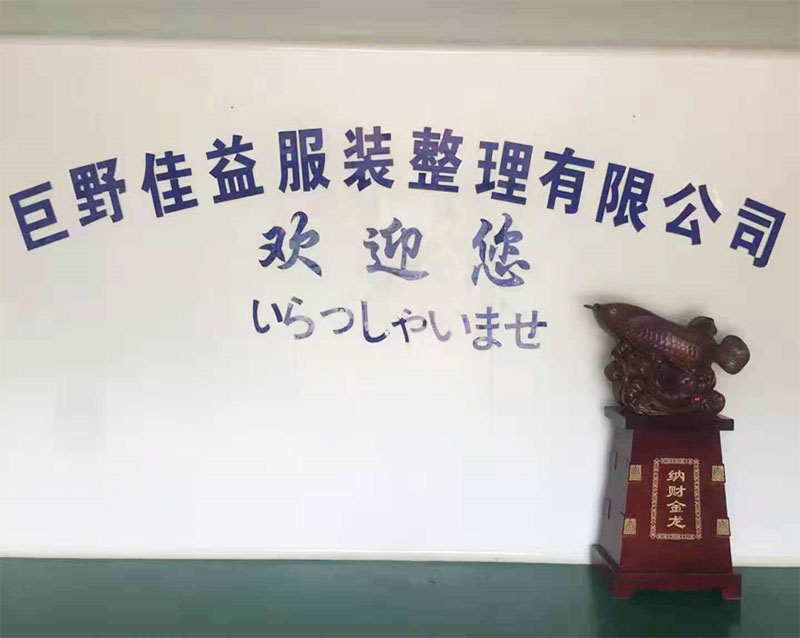 巨野佳益服装整理有限公司
欢迎您
いらつしゃいませ
纳财金龙